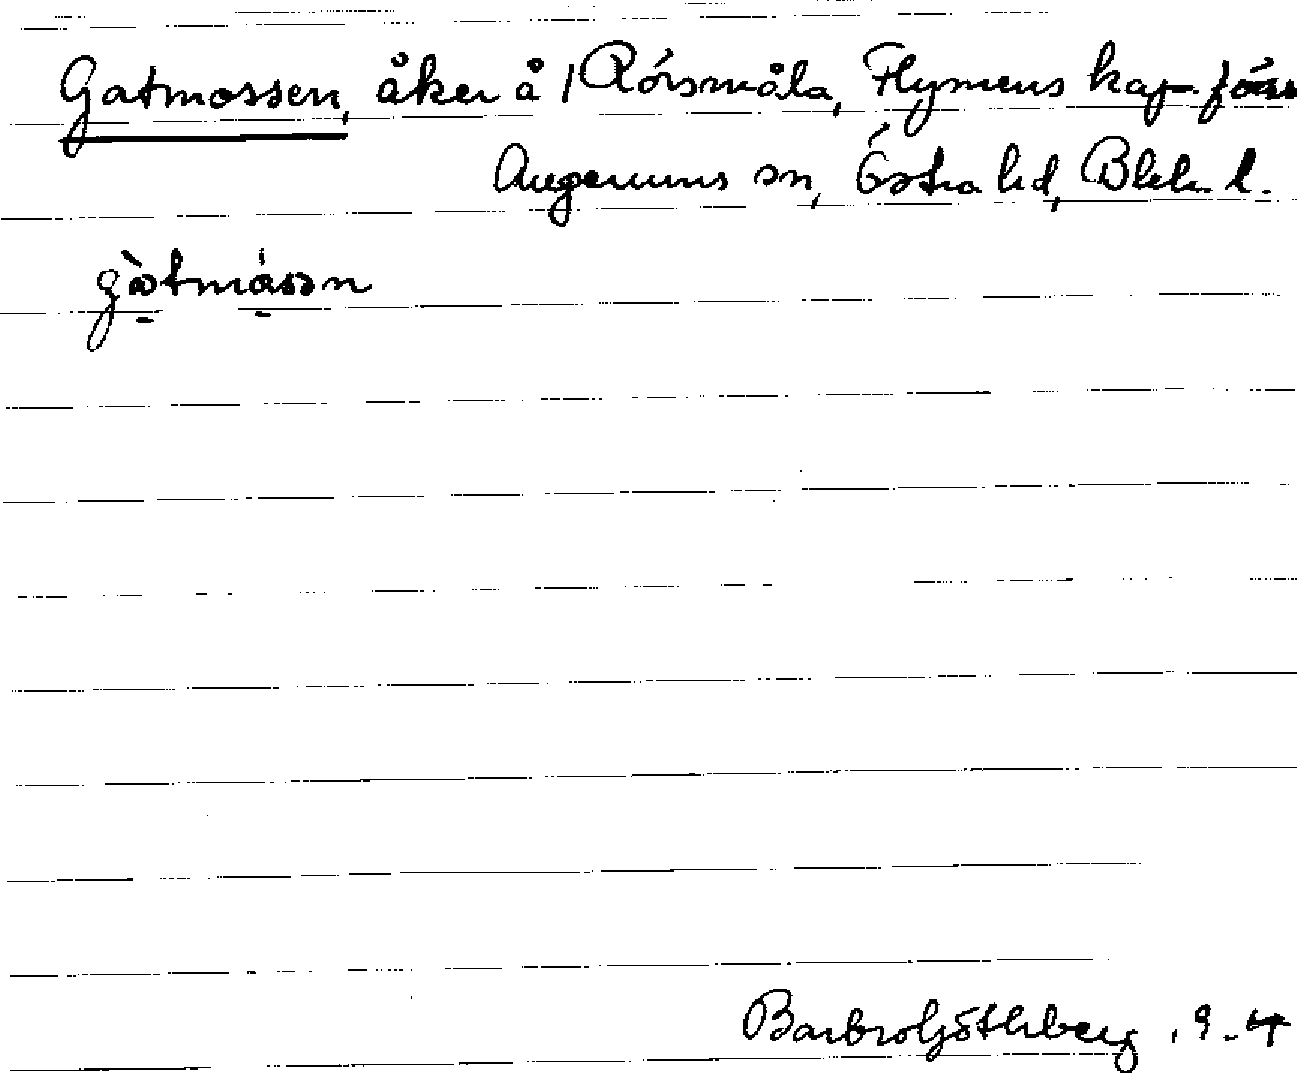 Gatmossen, åker å 1 Rörsmåla, Flymens kap. förs
Augerums sn, Östra hd, Blek. l.
gàtmássn
Barbro Göthberg . 9. 4